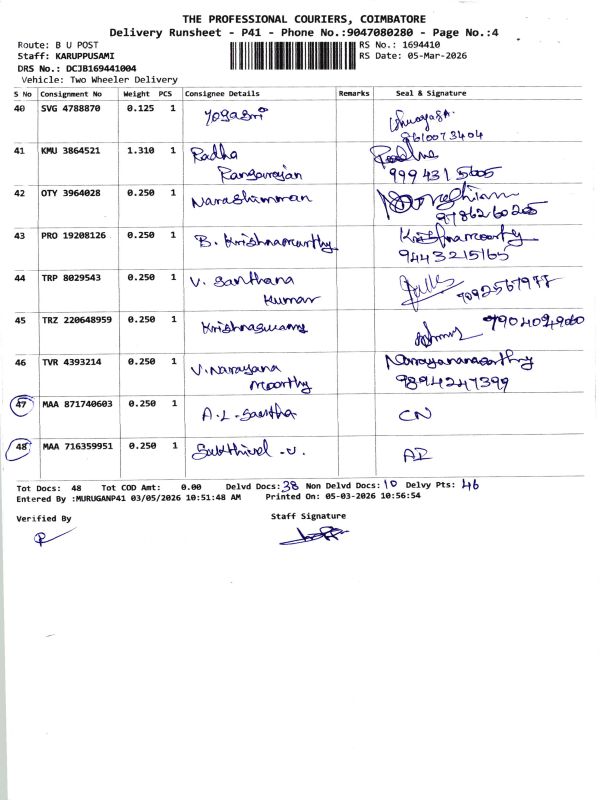 THE PROFESSIONAL COURIERS, COIMBATORE
Delivery Runsheet - P41 - Phone No.:9047080280 - Page No.:4
Route: B U POST
RS No.: 1694410
Staff: KARUPPUSAMI
RS Date: 05-Mar-2026
DRS No.: DCJB169441004
Vehicle: Two Wheeler Delivery
S No Consignment No Weight PCS Consignee Details Remarks Seal & Signature
40 SVG 4788870 0.125 1 Yogasri
8610073404
41 KMU 3864521 1.310 1 Radha Radha
Rangarajan 9994315605
42 OTY 3964028 0.250 1 Narashimman
9786260205
43 PRO 19208126 0.250 1 B. Krishnamoorthy Krishnamoorthy
9443215165
44 TRP 8029543 0.250 1 V. Santhana
Kumar 7092567977
45 TRZ 220648959 0.250 1 Krishnaswamy 97904094960
46 TVR 4393214 0.250 1 V. Narayana Narayanamoorthy
moorthy 9894247399
47 MAA 871740603 0.250 1 A.L. Saertha CN
48 MAA 716359951 0.250 1 Sakthivel .v. AD
Tot Docs: 48 Tot COD Amt: 0.00 Delvd Docs: 38 Non Delvd Docs: 10 Delvy Pts: 46
Entered By :MURUGANP41 03/05/2026 10:51:48 AM Printed On: 05-03-2026 10:56:54
Verified By Staff Signature